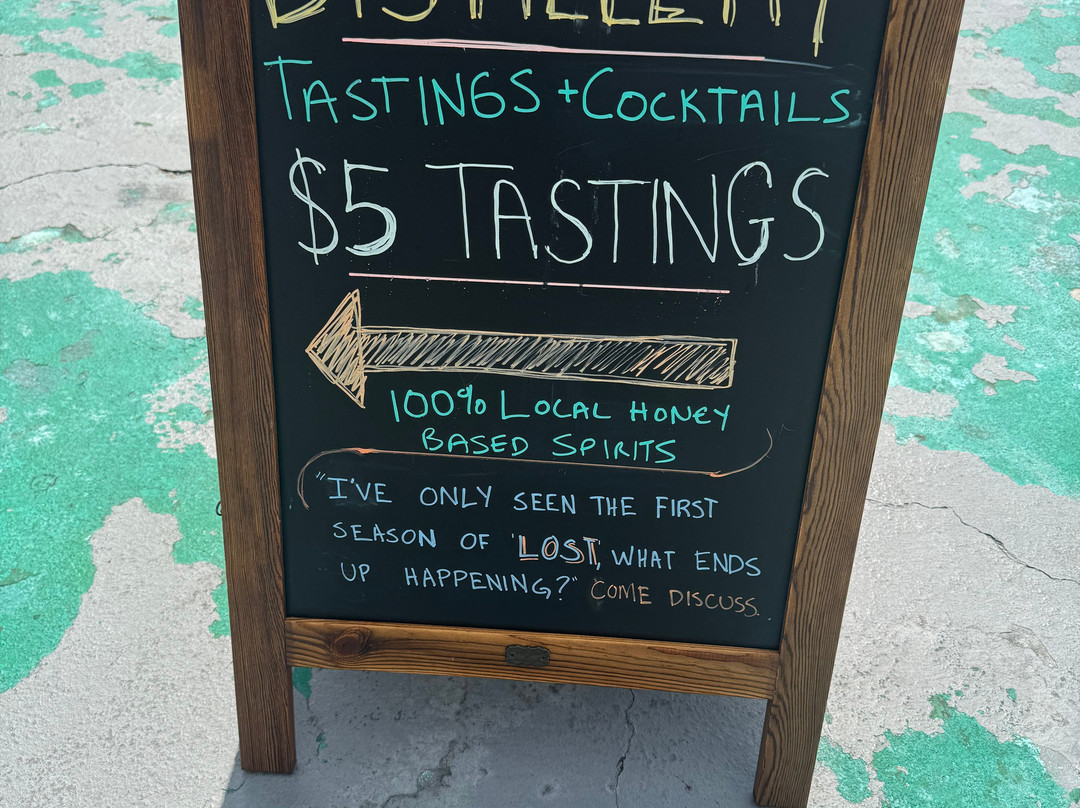 DISTILLERY
TASTINGS + COCKTAILS
$5 TASTINGS
100% LOCAL HONEY
BASED SPIRITS
"I'VE ONLY SEEN THE FIRST
SEASON OF 'LOST', WHAT ENDS
UP HAPPENING?" COME DISCUSS.